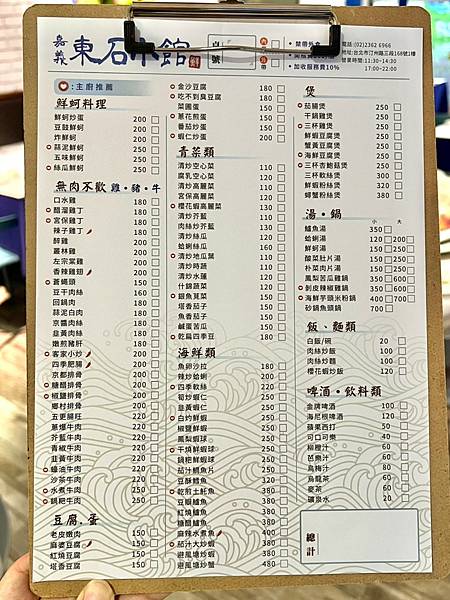 嘉義 東石小館
桌號
內
外
帶
• 禁帶外食
加收服務費10%
電話:(02)2362 6966
地址:台北市汀州路三段168號1樓
營業時間:11:30~14:30
17:00~22:00
:主廚推薦
鮮蚵料理
鮮蚵炒蛋 200
豆鼓鮮蚵 200
炸鮮蚵 200
蒜泥鮮蚵 250
五味鮮蚵 250
絲瓜鮮蚵 250
無肉不歡 雞•豬•牛
口水雞 180
醋溜雞丁 180
宮保雞丁 180
辣子雞丁 180
醉雞 200
叢林雞 200
左宗棠雞 200
香辣雞翅 200
蒼蠅頭 150
豆干肉絲 160
回鍋肉 180
蒜泥白肉 180
京醬肉絲 180
韭黃肉絲 180
嫩煎豬肝 180
客家小炒 200
四季肥腸 220
京都排骨 200
糖醋排骨 200
椒鹽排骨 200
鄉村排骨 200
五更腸旺 220
蔥爆牛肉 220
芥藍牛肉 220
青椒牛肉 220
韭黃牛肉 220
蠔油牛肉 220
沙茶牛肉 220
水煮牛肉 250
鍋粑牛肉 250
豆腐.蛋
老皮嫩肉 150
麻婆豆腐 150
紅燒豆腐 150
塔香茄子 150
金沙豆腐 180
吃不到臭豆腐 180
菜圃蛋 150
蔥花煎蛋 150
番茄炒蛋 150
蝦仁炒蛋 180
青菜類
清炒空心菜 110
腐乳空心菜 120
清炒高麗菜 110
宮保高麗菜 120
櫻花蝦高麗菜 130
清炒芥藍 110
肉絲炒芥藍 130
清炒絲瓜 120
蛤蜊絲瓜 160
清炒地瓜葉 110
清炒時蔬 110
清炒水蓮 120
什錦蔬菜 120
銀魚莧菜 150
塔香茄子 150
魚香茄子 150
鹹蛋苦瓜 150
乾扁四季豆 180
海鮮類
魚卵沙拉 180
辣炒蛤蜊 200
四季軟絲 220
筍炒蝦仁 250
韭黃蝦仁 250
白灼鮮蝦 250
椒鹽鮮蝦 250
鳳梨蝦球 250
干燒鮮蝦球 250
鍋粑鮮蝦球 250
茄汁鯛魚片 250
豆酥鱈魚 320
乾煎土魠魚 380
豆瓣鱸魚 380
紅燒鱸魚 380
糖醋鱸魚 380
麻辣水煮魚 400
茄汁大炒蝦 380
避風塘炒蝦 380
避風塘炒蟹 480
煲
茄腸煲 250
干鍋雞煲 250
三杯雞煲 250
鮮蝦豆腐煲 250
蟹黃豆腐煲 250
海鮮豆腐煲 250
三杯杏鮑菇煲 250
三杯軟絲煲 300
鮮蝦粉絲煲 320
螃蟹粉絲煲 380
湯•鍋
小 大
鱸魚湯 350
蛤蜊湯 120 200
鮮蚵湯 150 250
酸菜肚片湯 150 250
朴菜肉片湯 150 250
鳳梨苦瓜雞鍋 350 600
剝皮辣椒雞鍋 350 600
海鮮芋頭米粉鍋 400 700
砂鍋魚頭鍋 700
飯、麵類
白飯/碗 20
肉絲炒飯 100
肉絲炒麵 100
櫻花蝦炒飯 120
啤酒•飲料類
金牌啤酒 100
海尼根啤酒 120
蘋果西打 50
可口可樂 40
柳橙汁 60
芭樂汁 60
烏梅汁 80
烏龍茶 60
麥茶 60
礦泉水 20
總計